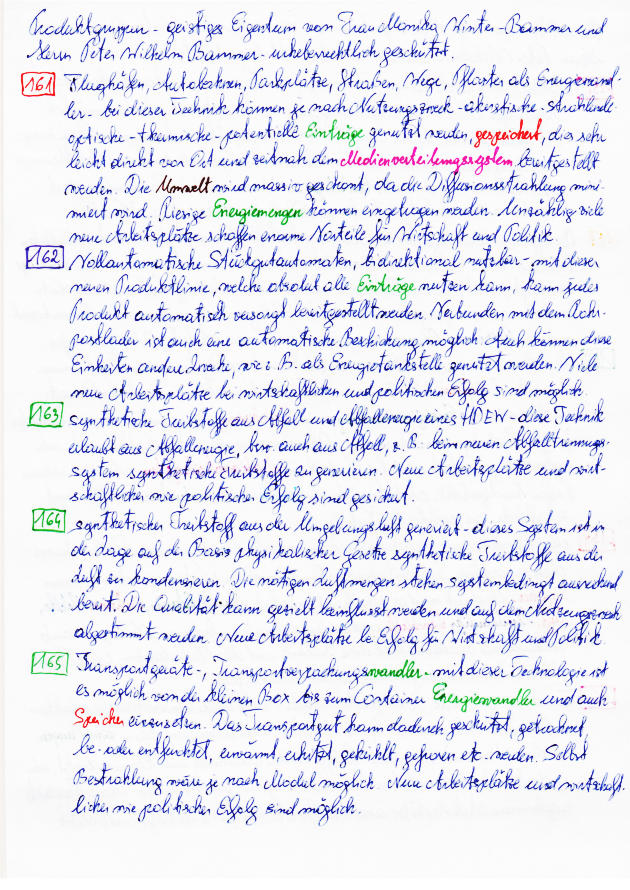 Produktgruppen - geistiges Eigentum von Frau Monika Winter-Bammer und
Herrn Peter Wilhelm Bammer - urheberrechtlich geschützt.
161 Flughäfen, Autobahnen, Parkplätze, Straßen, Wege, Pflaster als Energiewand-
ler - bei dieser Technik können je nach Nutzungszweck - akustische - strahlende
optische - thermische - potentielle Einträge genutzt werden, gespeichert, dies sehr
leicht direkt vor Ort und zeitnah dem Medienverteilungssystem bereitgestellt
werden. Die Umwelt wird massiv geschont, da die Diffusionsstrahlung mini-
miert wird. Riesige Energiemengen können eingetragen werden. Unzählig viele
neue Arbeitsplätze schaffen enorme Vorteile für Wirtschaft und Politik.
162 Vollautomatische Stückgutautomaten, bidirektional nutzbar - mit dieser
neuen Produktlinie, welche absolut alle Einträge nutzen kann, kann jedes
Produkt automatisch versorgt bereitgestellt werden. Verbunden mit dem Rohr-
postlader ist auch eine automatische Beschickung möglich. Auch können diese
Einheiten andere Zwecke, wie z. B. als Energietankstelle genutzt werden. Viele
neue Arbeitsplätze bei wirtschaftlichen und politischen Erfolg sind möglich.
163 synthetische Treibstoffe aus Abfall und Abfallenergie eines HDEW - diese Technik
erlaubt aus Abfallenergie, bzw. auch aus Abfall, z. B. beim neuen Abfalltrennungs-
system synthetische Treibstoffe zu generieren. Neue Arbeitsplätze und wirt-
schaftlicher wie politischer Erfolg sind gesichert.
164 synthetischer Treibstoff aus der Umgebungsluft generiert - dieses System ist in
der Lage auf der Basis physikalischer Gesetze synthetische Treibstoffe aus der
Luft zu kondensieren. Die nötigen Luftmengen stehen systembedingt ausreichend
bereit. Die Qualität kann gezielt beeinflusst werden und auf den Nutzungszweck
abgestimmt werden. Neue Arbeitsplätze be Erfolg für Wirtschaft und Politik.
165 Transportgeräte-, Transportverpackungswandler - mit dieser Technologie ist
es möglich von der kleinen Box bis zum Container Energiewandler und auch
Speicher einzusetzen. Das Transportgut kann dadurch geschützt, getrocknet,
be- oder entfeuchtet, erwärmt, erhitzt, gekühlt, gefroren etc. werden. Selbst
Bestrahlung wäre je nach Modul möglich. Neue Arbeitsplätze und wirtschaft-
licher wie politischer Erfolg sind möglich.